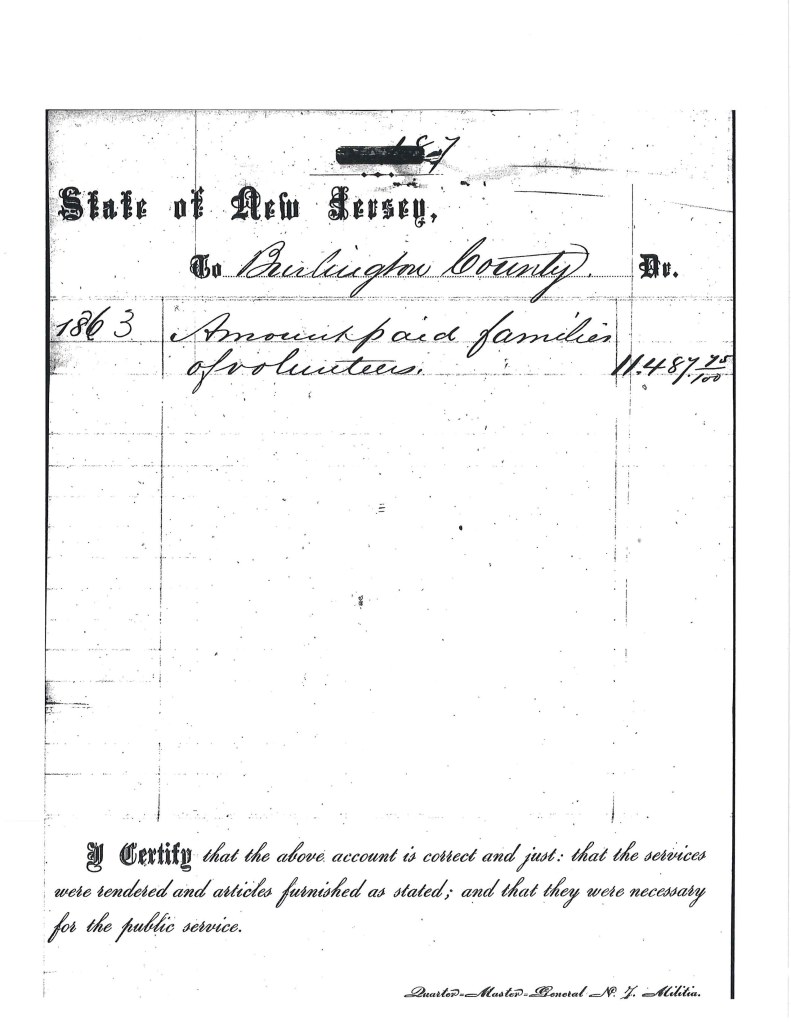 187
State of New Jersey,
To Burlington County. Dr.
1863 Amount paid families
of volunteers. 11.487 75/100
I Certify that the above account is correct and just: that the services
were rendered and articles furnished as stated; and that they were necessary
for the public service.
Quarter-Master-General N. J. Militia.